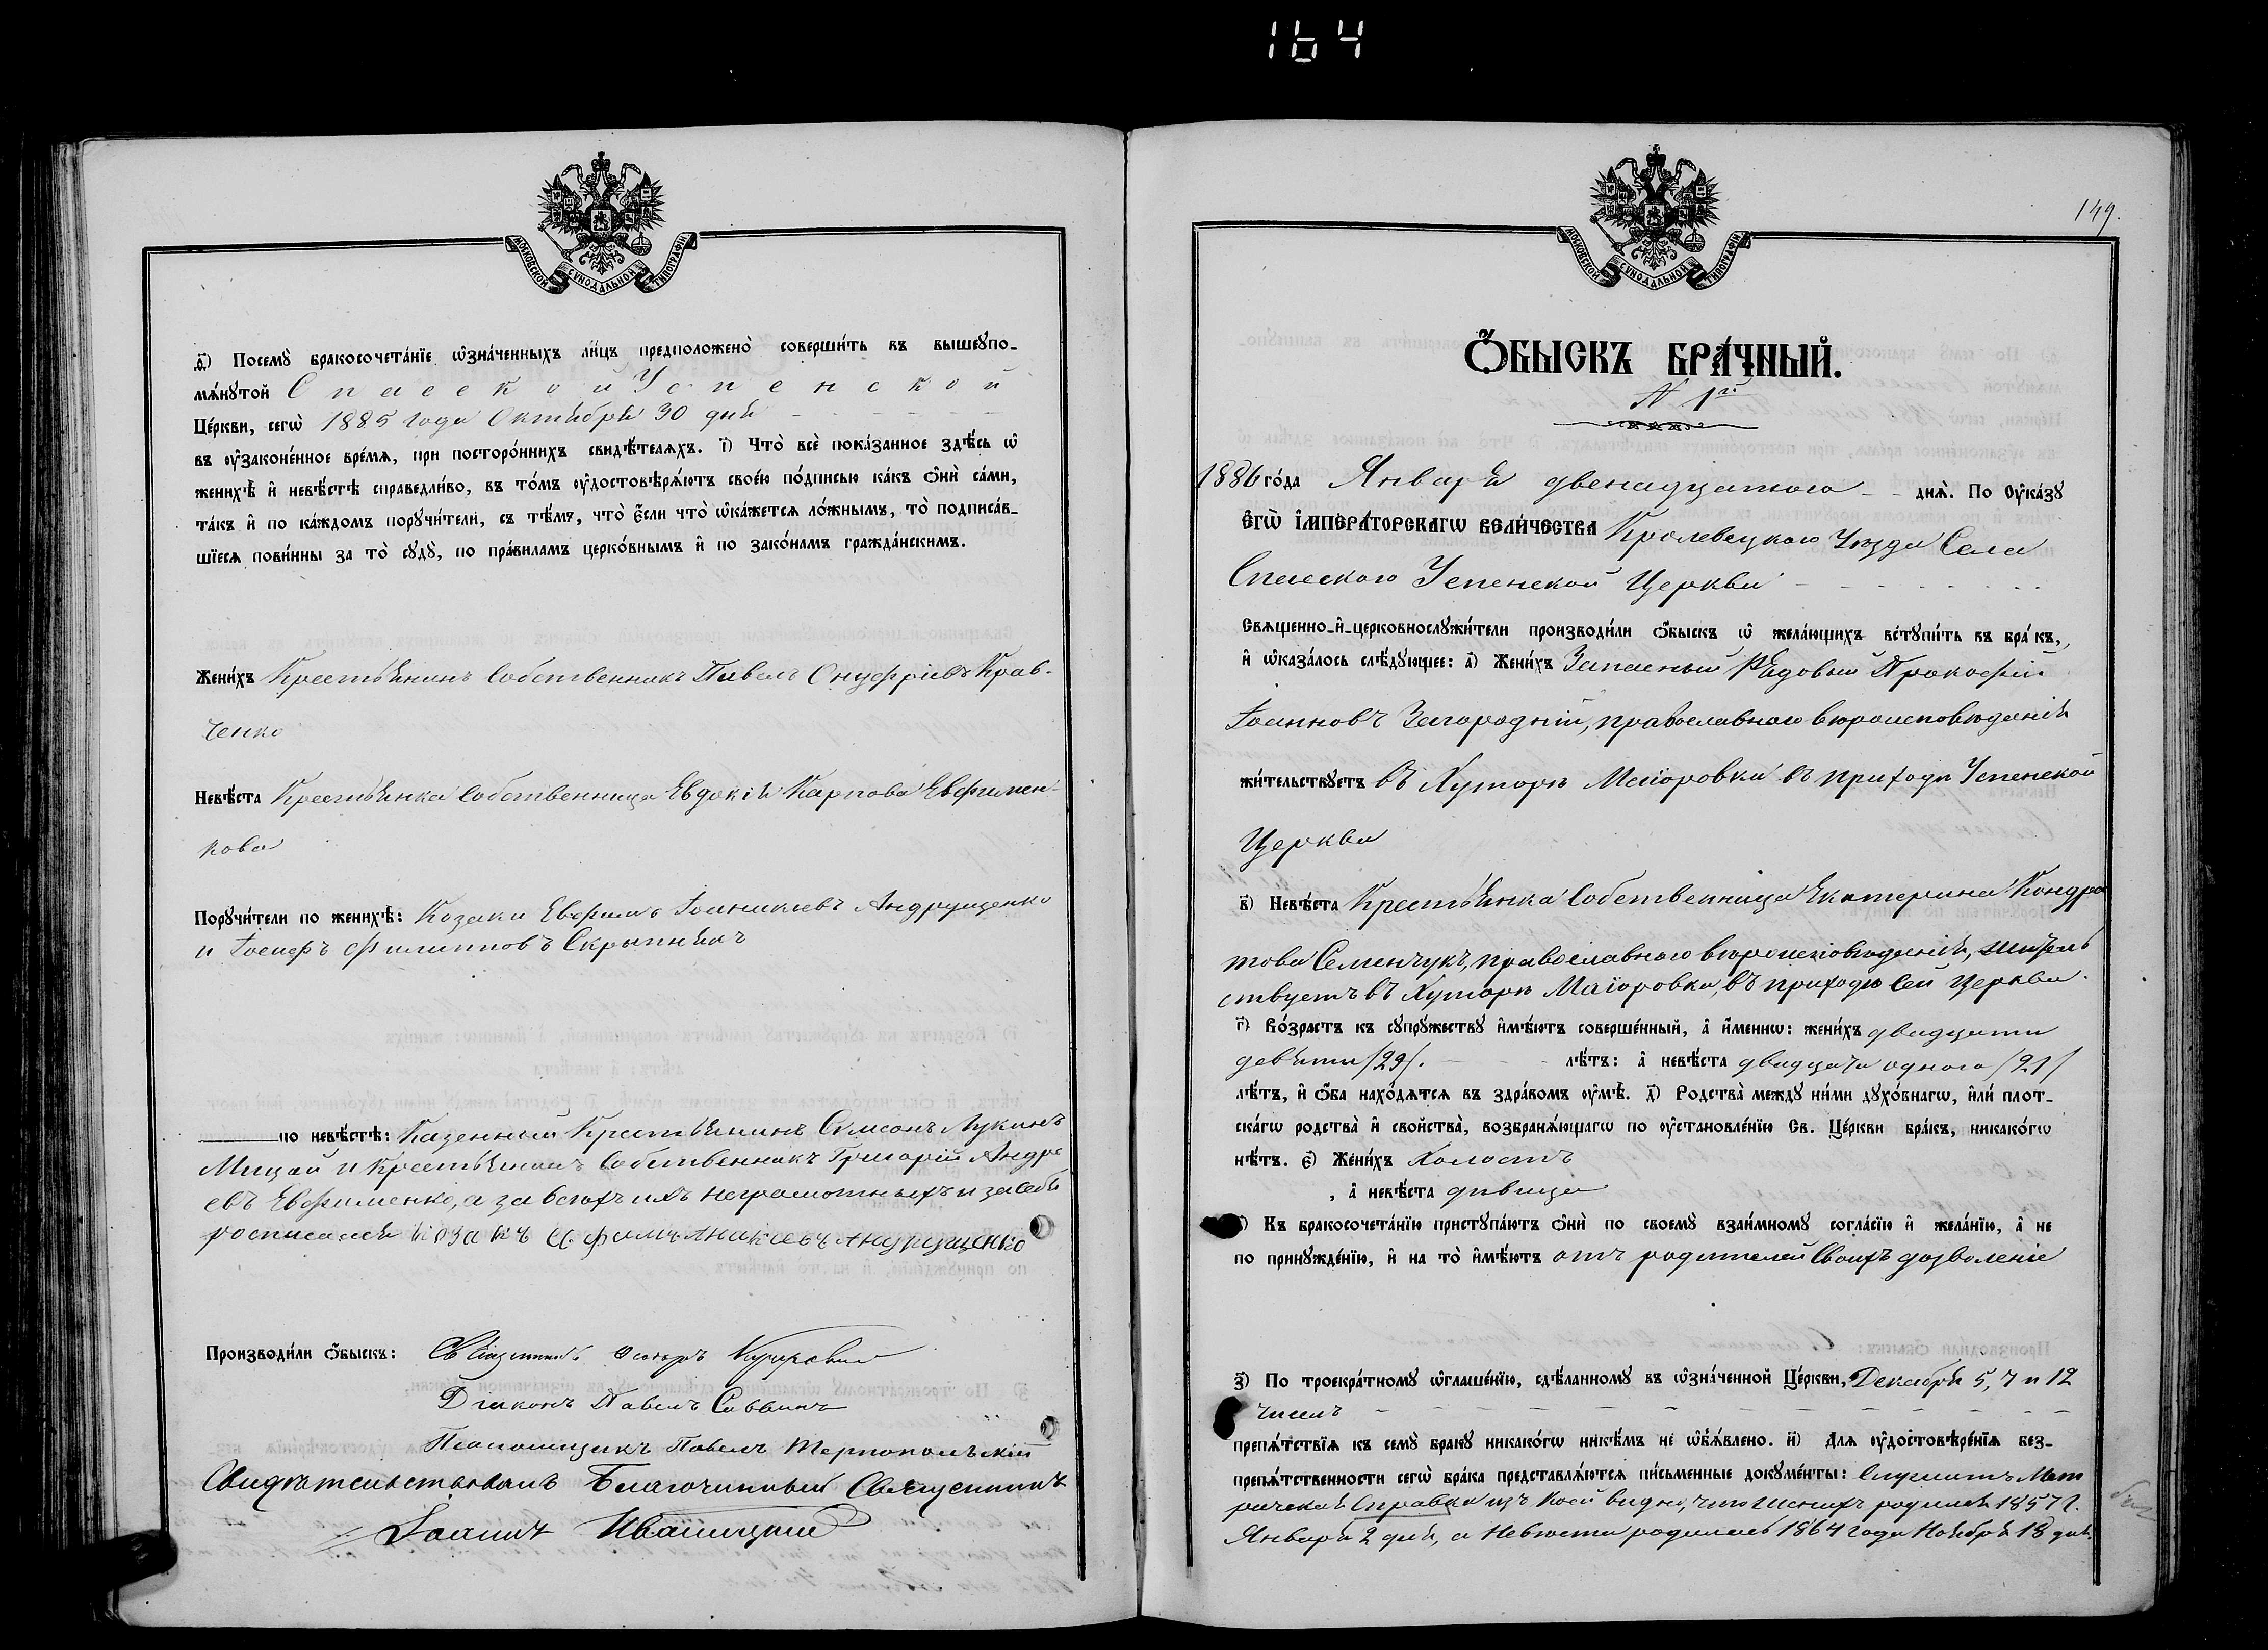 164
МОСКОВСКОЙ СУНОДАЛЬНОЙ ТИПОГРАФІИ
д҃і) Посемꙋ̀ бракосочета́нїе ѡ҆зна́ченныхъ ли́цъ предположено̀ соверши́ть въ вышеꙋпо-
мѧ́нꙋтой Спасской Успенской
Це́ркви, сегѡ̀ 1885 года Октября 30 дня
въ ᲂу҆зако́ненное вре́мѧ, при посторо́ннихъ свидѣ́телѧхъ. і҃) Что̀ всѐ пока́занное здѣ́сь ѡ҆
женихѣ̀ и҆ невѣ́стѣ справедли́во, въ то́мъ ᲂу҆достовѣрѧ́ютъ свое́ю по́дписью ка́къ ѻ҆нѝ са́ми,
та́къ и҆ по ка́ждомъ порꙋчи́тели, съ тѣ́мъ, что̀ є҆́сли что̀ ѡ҆ка́жетсѧ ло́жнымъ, то̀ подписа́в-
шїесѧ пови́нны за то̀ сꙋдꙋ̀, по пра́виламъ церко́внымъ и҆ по зако́намъ гражда́нскимъ.
Жени́хъ Крестьянинъ Собственникъ Павелъ Онуфріевъ Крав-
ченко
Невѣ́ста Крестьянка Собственница Евдокія Карпова Евфимен-
кова
Порꙋчи́тели по женихѣ̀: Козаки Евфимъ Іоанникіевъ Андрущенко
и Іосифъ Филипповъ Скрыпникъ
по невѣ́стѣ: Казенный Крестьянинъ Симеонъ Лукинъ
Мицай и Крестьянинъ Собственникъ Григорій Андре
евъ Евфименко, а за всехъ ихъ неграмотныхъ и за себя
росписался Козакъ Ефимъ Аникіевъ Андрущенко
Производи́ли ѻ҆́быскъ: Священникъ
Діаконъ Павелъ Саввинъ
Псаломщикъ Павелъ Тернопольскій
Свидѣтельствовалъ Благочинный Священникъ
Іоаннъ Иваницкій
149.
МОСКОВСКОЙ СУНОДАЛЬНОЙ ТИПОГРАФІИ
Ѻ҆́БЫСКЪ БРА́ЧНЫЙ.
№ 1й
1886 го́да Января двенадцатого днѧ̀. По ᲂу҆ка́зꙋ
Є҆ГѠ̀ И҆МПЕРА́ТОРСКАГѠ ВЕЛИ́ЧЕСТВА Кролевецкого Уѣзда Села
Спасского Успенской Церкви
Свѧщенно-и҆-церковнослꙋжи́тели производи́ли ѻ҆́быскъ ѡ҆ жела́ющихъ встꙋпи́ть въ бра́къ,
и҆ ѡ҆каза́лось слѣ́дꙋющее: а҃) Жени́хъ Запасный Рядовый Прокофій
Іоанновъ Загородній, православного вѣроисповѣданія
жи́тельствꙋетъ въ Хуторѣ Маіоровки въ приходѣ Успенской
Церкви
в҃) Невѣ́ста Крестьянка Собственница Екатерина Кондра
това Семенчукъ, православного вѣроисповѣданія, житель
ствуетъ въ Хуторѣ Маіоровки, въ приходѣ сей Церкви
г҃) Во́зрастъ къ сꙋпрꙋ́жествꙋ и҆мѣ́ютъ соверше́нный, а҆ и҆́меннѡ: жени́хъ двадцати
девяти /29/. лѣ́тъ: а҆ невѣ́ста двадцати одного /21/
лѣ́тъ, и҆ ѻ҆́ба нахо́дѧтсѧ въ здра́вомъ ᲂу҆мѣ̀. д҃) Родства̀ междꙋ ни́ми дꙋхо́внагѡ, и҆лѝ плот-
ска́гѡ родства̀ и҆ свойства̀, возбранѧ́ющагѡ по ᲂу҆становле́нїю Св. Це́ркви бра́къ, никако́гѡ
нѣ́тъ. є҃) Жени́хъ Холостъ
, а҆ невѣ́ста дѣвица
) Къ бракосочета́нїю пристꙋпа́ютъ ѻ҆нѝ по своемꙋ̀ взаи́мномꙋ согла́сїю и҆ жела́нїю, а҆ не
по принꙋжде́нїю, и҆ на то̀ и҆мѣ́ютъ отъ родителей Своихъ дозволеніе
з҃) По троекра́тномꙋ ѡ҆глаше́нїю, сдѣ́ланномꙋ въ ѡ҆зна́ченной Це́ркви, Декабря 5, 7 и 12
Числъ
препѧ́тствїѧ къ семꙋ̀ бра́кꙋ никако́гѡ никѣ́мъ не ѡ҆б̾ѧ́влено. и҃) Длѧ ᲂу҆достовѣре́нїѧ без-
препѧ́тственности сегѡ̀ бра́ка представлѧ́ютсѧ пи́сьменные докꙋме́нты: Служитъ Мет
рическая Справка изъ коей видно, что женихъ родился 1857 г.
Января 2 дня, а Невѣста родилась 1864 года Ноября 18 дня.